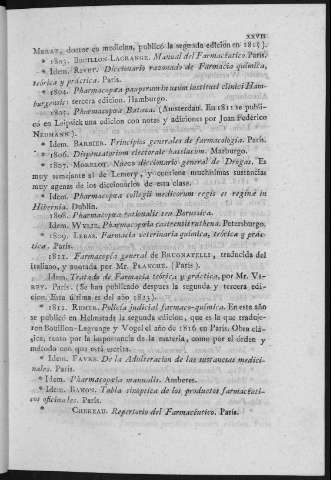 XXVII
MERAT, doctor en medicina, publicó la segunda edicion en 1815).
* 1803. BOUILLON-LAGRANGE. Manual del Farmacéutico. Paris.
* Idem. RIVET. Diccionario razonado de Farmacia química,
teórica y práctica. Paris.
* 1804. Pharmacopœa pauperum in usum institut clinici Ham-
burgensis: tercera edicion. Hamburgo.
1805. Pharmacopœa Batava. (Amsterdan). En 1811 se publi-
có en Leipsick una edicion con notas y adiciones por Juan Federico
NIEMANN).
* Idem. BARBIER. Principios generales de farmacología. Paris.
* 1806. Dispensatorium electorale hassiacum. Marburgo.
* 1807. MORELOT. Nuevo diccionario general de Drogas. Es
muy semejante al de Lemery, y contiene muchísimas sustancias
muy agenas de los diccionarios de esta clase.
* Idem. Pharmacopœa collegii medicorum regis et reginæ in
Hibernia. Dublin.
1808. Pharmacopœa castrensis Borussica.
Idem. WYLIE. Pharmacopœia castrensis ruthena. Petersburgo.
* 1809. LEBAS. Farmacia veterinaria química, teórica y prác-
tica. Paris.
1811. Farmacopéa general de BRUGNATELLI, traducida del
italiano, y anotada por Mr. PLANCHE. (Paris).
Idem. Tratado de Farmacia teórica y práctica, por Mr. VI-
REY. Paris. (Se han publicado despues la segunda y tercera edi-
cion. Esta última es del año 1823).
* 1812. REMER. Policía judicial farmaco-química. En este año
se publicó en Helmstadt la segunda edicion, que es la que traduje-
ron Bouillon-Lagrange y Vogel el año de 1816 en Paris. Obra clá-
sica, tanto por la importancia de la materia, como por el órden y
método con que está escrita.
* Idem. FAVRE. De la Adulteracion de las sustancias medici-
nales. Paris.
* Idem. Pharmacopœia manualis. Amberes.
* Idem. BANON. Tabla sinóptica de los productos farmacéuti-
cos oficinales. Paris.
* CHEREAU. Repertorio del Farmacéutico. Paris.